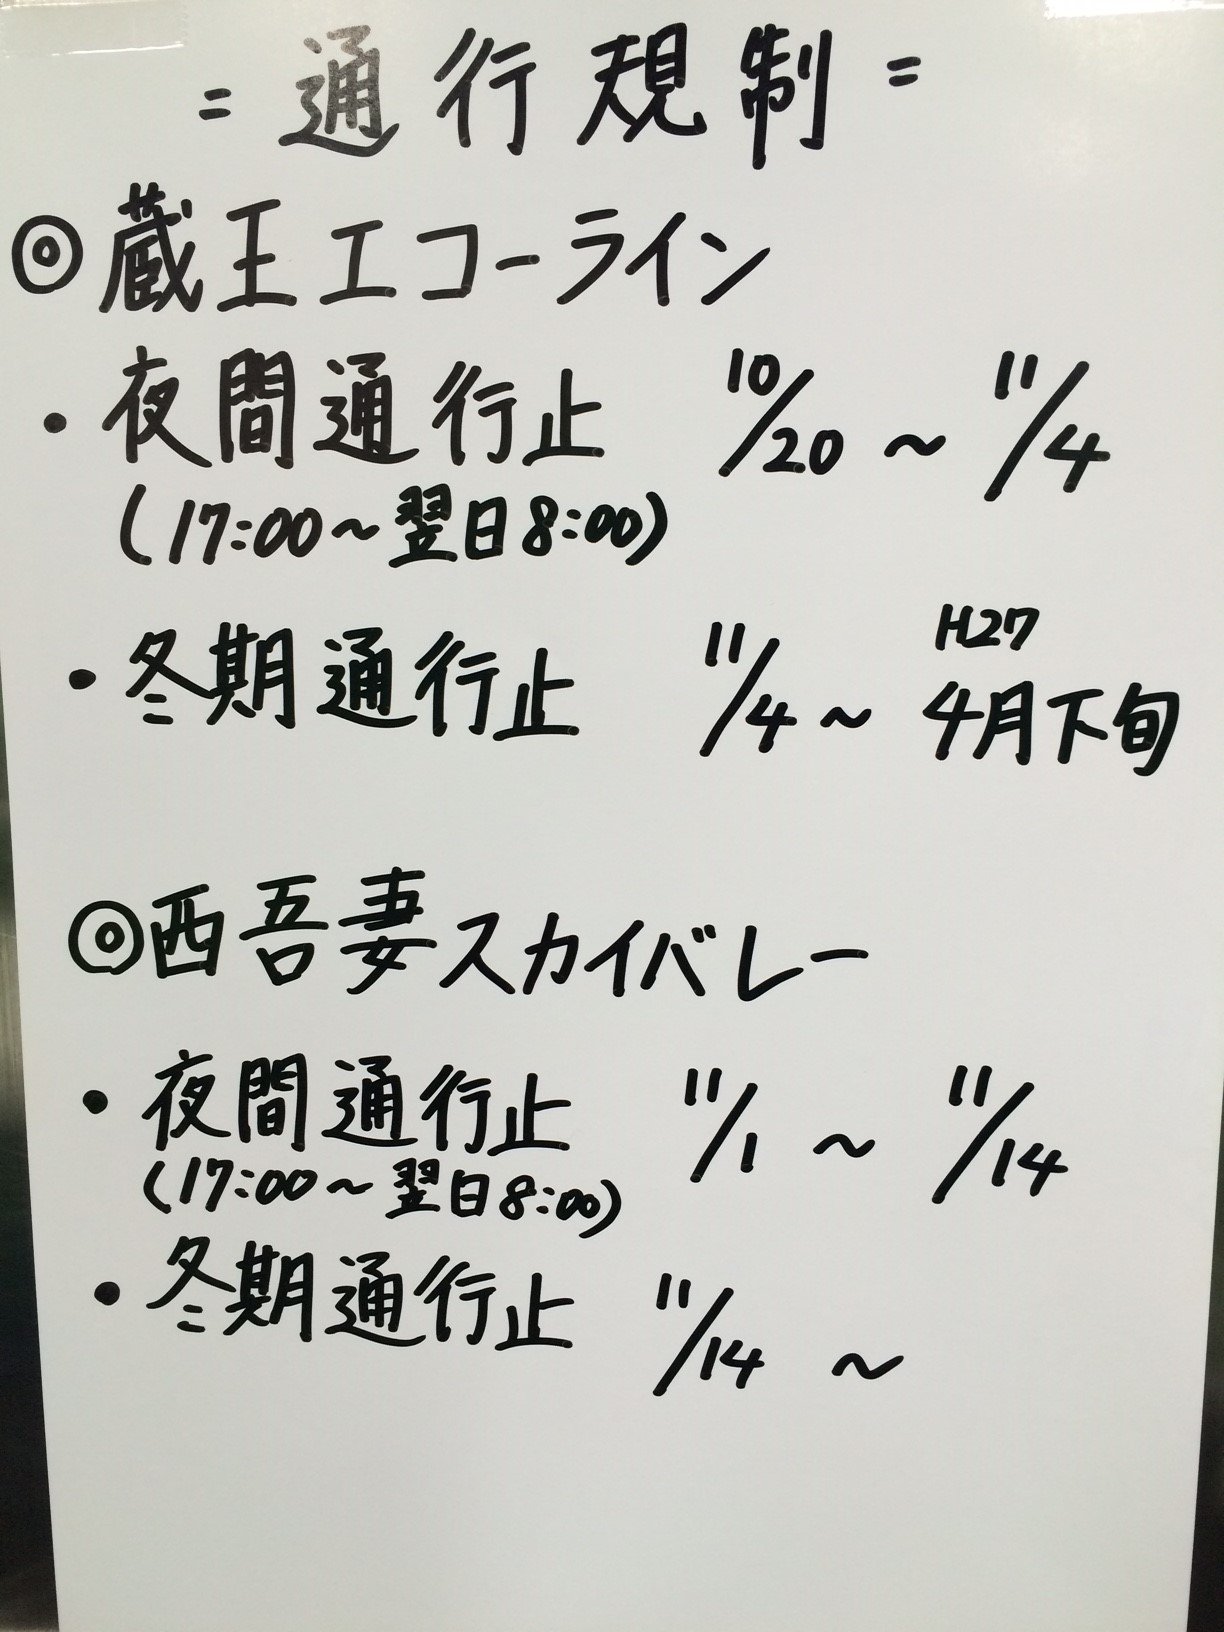 = 通行規制 =
◎蔵王エコーライン
・夜間通行止 10/20 ～ 11/4
(17:00～翌日8:00)
・冬期通行止 11/4 ～ H27 4月下旬
◎西吾妻スカイバレー
・夜間通行止 11/1 ～ 11/14
(17:00～翌日8:00)
・冬期通行止 11/14 ～